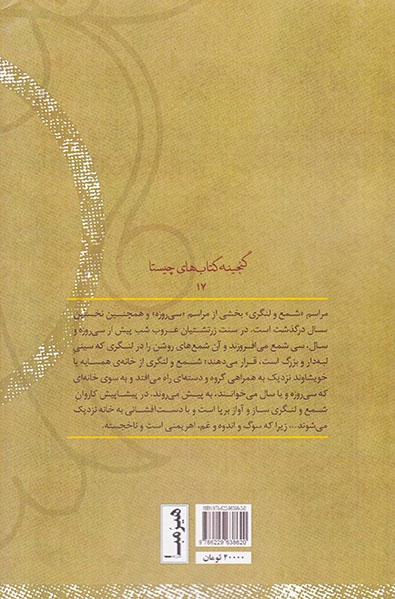 گنجینه کتاب‌های چیستا
۱۷
مراسم «شمع و لنگری» بخشی از مراسم «سی‌روزه» و همچنین نخستین
سال درگذشت است. در سنت زرتشتیان غروب شب پیش از سی‌روزه و
سال، سی شمع می‌افروزند و آن شمع‌های روشن را در لنگری که سینی
لبه‌دار و بزرگ است، قرار می‌دهند؛ شمع و لنگری از خانه‌ی همسایه یا
خویشاوند نزدیک به همراهی گروه و دسته‌ای راه می‌افتد و به سوی خانه‌ای
که سی‌روزه و یا سال می‌خوانند، به پیش می‌روند. در پیشاپیش کاروان
شمع و لنگری ساز و آواز برپا است و با دست‌افشانی به خانه نزدیک
می‌شوند... زیرا که سوگ و اندوه و غم، اهریمنی است و ناخجسته.
هیرمبا
9 786229 638620
۴۰۰۰۰ تومان